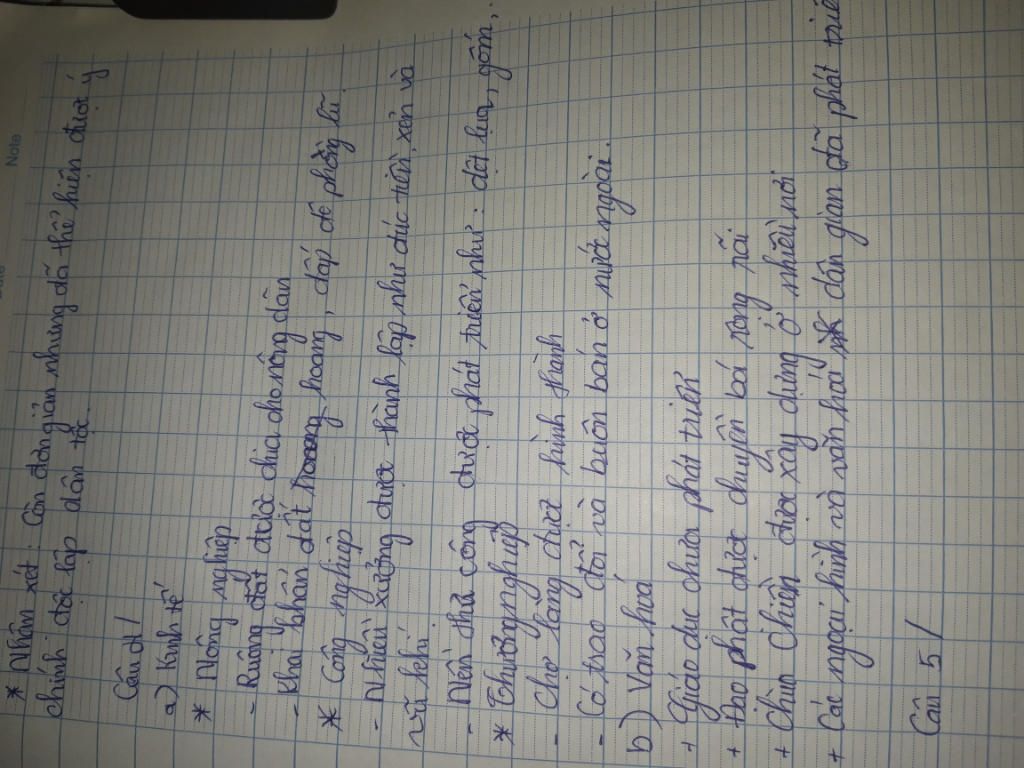 Note
* Nhận xét: Còn đơn giản nhưng đã thể hiện được ý
chính độc lập dân tộc.
Câu 4/
a) Kinh tế
* Nông nghiệp
- Ruộng đất được chia cho nông dân
- Khai khẩn đất hoang, đắp đê phòng lũ.
* Công nghiệp
- Nhiều xưởng được thành lập như đúc tiền, rèn và
vũ khí
- Nền thủ công được phát triển như: dệt lụa, gốm,..
* Thương nghiệp
- Chợ làng được hình thành
- Có trao đổi và buôn bán ở nước ngoài.
b) Văn hoá
+ Giáo dục chưa phát triển
+ Đạo phật được chuyền bá rộng rãi
+ Chùa Chiền được xây dựng ở nhiều nơi
+ Các ngoại hình và văn hoá dân gian đã phát triể
Câu 5/